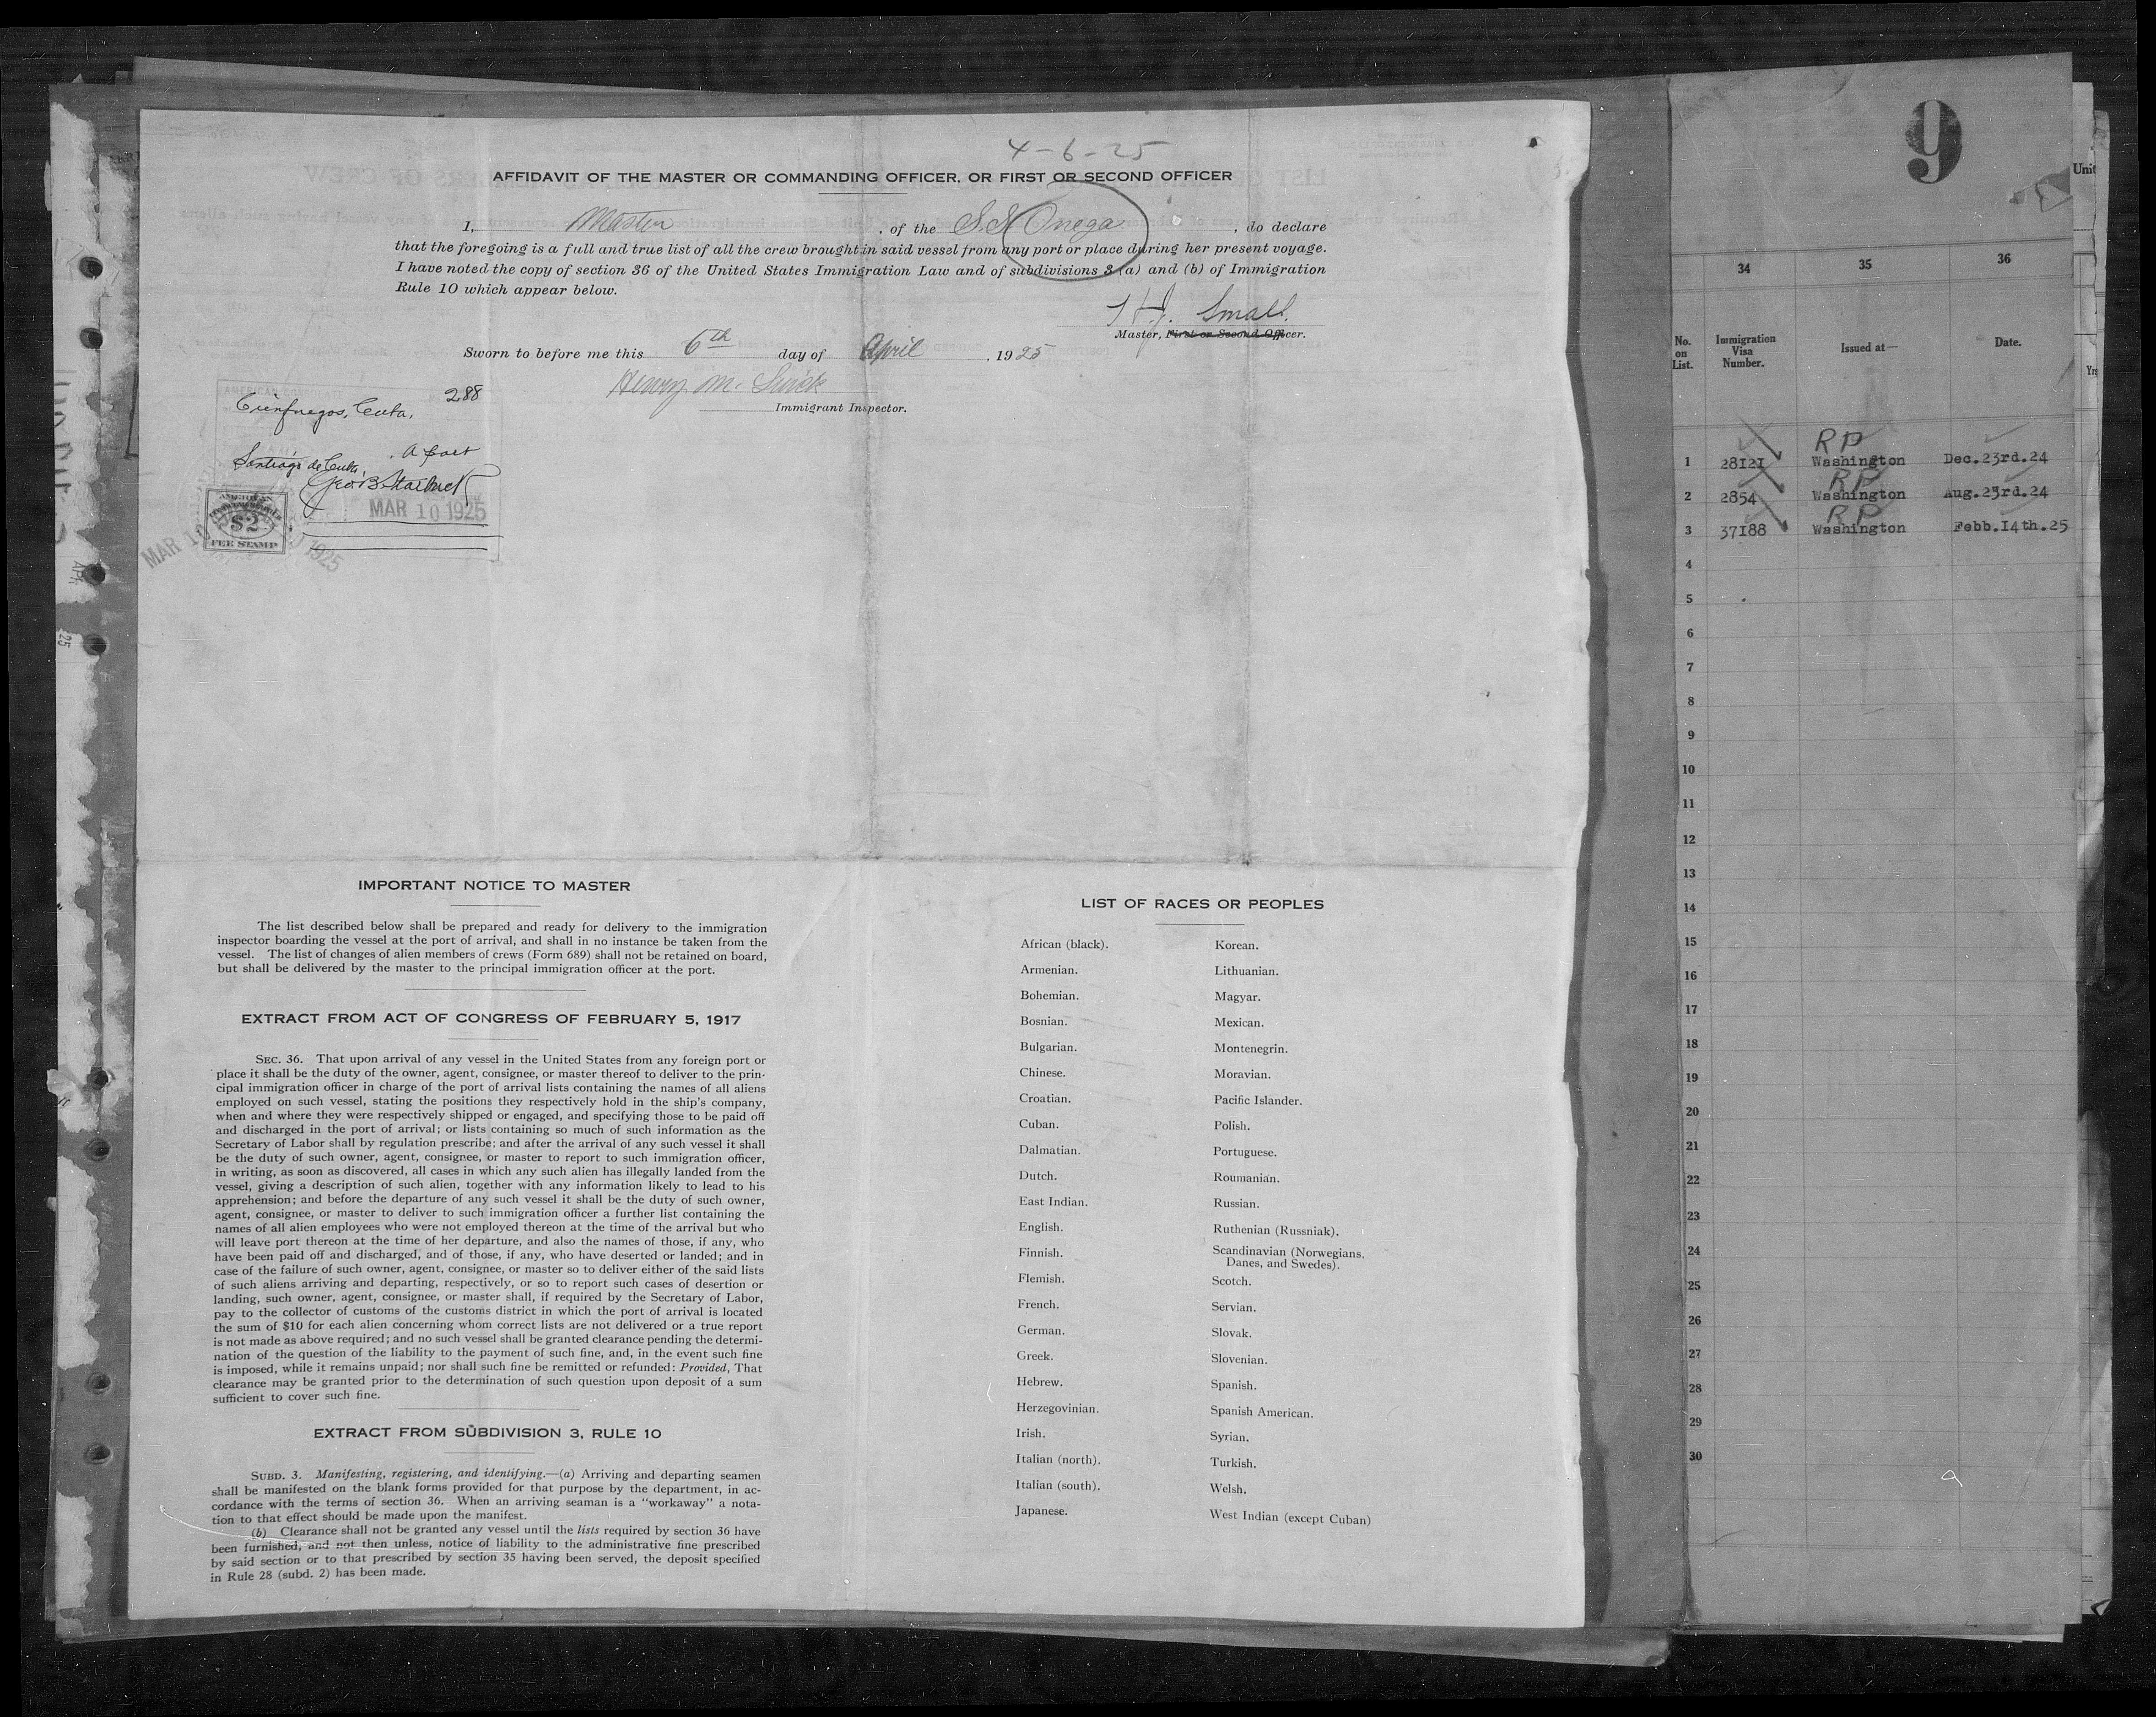 4-6-25
AFFIDAVIT OF THE MASTER OR COMMANDING OFFICER, OR FIRST OR SECOND OFFICER
I, Master, of the S.S. Onega, do declare
that the foregoing is a full and true list of all the crew brought in said vessel from any port or place during her present voyage.
I have noted the copy of section 36 of the United States Immigration Law and of subdivisions 3 (a) and (b) of Immigration
Rule 10 which appear below.
H. Small.
Master, First or Second Officer.
Sworn to before me this 6th day of April, 1925
Henry M.
Immigrant Inspector.
288
Cienfuegos, Cuba,
Santiago de Cuba,
MAR 10 1925
AMERICAN
$2
FEE STAMP
MAR 10 1925
IMPORTANT NOTICE TO MASTER
The list described below shall be prepared and ready for delivery to the immigration
inspector boarding the vessel at the port of arrival, and shall in no instance be taken from the
vessel. The list of changes of alien members of crews (Form 689) shall not be retained on board,
but shall be delivered by the master to the principal immigration officer at the port.
EXTRACT FROM ACT OF CONGRESS OF FEBRUARY 5, 1917
SEC. 36. That upon arrival of any vessel in the United States from any foreign port or
place it shall be the duty of the owner, agent, consignee, or master thereof to deliver to the prin-
cipal immigration officer in charge of the port of arrival lists containing the names of all aliens
employed on such vessel, stating the positions they respectively hold in the ship's company,
when and where they were respectively shipped or engaged, and specifying those to be paid off
and discharged in the port of arrival; or lists containing so much of such information as the
Secretary of Labor shall by regulation prescribe; and after the arrival of any such vessel it shall
be the duty of such owner, agent, consignee, or master to report to such immigration officer,
in writing, as soon as discovered, all cases in which any such alien has illegally landed from the
vessel, giving a description of such alien, together with any information likely to lead to his
apprehension; and before the departure of any such vessel it shall be the duty of such owner,
agent, consignee, or master to deliver to such immigration officer a further list containing the
names of all alien employees who were not employed thereon at the time of the arrival but who
will leave port thereon at the time of her departure, and also the names of those, if any, who
have been paid off and discharged, and of those, if any, who have deserted or landed; and in
case of the failure of such owner, agent, consignee, or master so to deliver either of the said lists
of such aliens arriving and departing, respectively, or so to report such cases of desertion or
landing, such owner, agent, consignee, or master shall, if required by the Secretary of Labor,
pay to the collector of customs of the customs district in which the port of arrival is located
the sum of $10 for each alien concerning whom correct lists are not delivered or a true report
is not made as above required; and no such vessel shall be granted clearance pending the determi-
nation of the question of the liability to the payment of such fine, and, in the event such fine
is imposed, while it remains unpaid; nor shall such fine be remitted or refunded: Provided, That
clearance may be granted prior to the determination of such question upon deposit of a sum
sufficient to cover such fine.
EXTRACT FROM SUBDIVISION 3, RULE 10
SUBD. 3. Manifesting, registering, and identifying.—(a) Arriving and departing seamen
shall be manifested on the blank forms provided for that purpose by the department, in ac-
cordance with the terms of section 36. When an arriving seaman is a "workaway" a nota-
tion to that effect should be made upon the manifest.
(b) Clearance shall not be granted any vessel until the lists required by section 36 have
been furnished, and not then unless, notice of liability to the administrative fine prescribed
by said section or to that prescribed by section 35 having been served, the deposit specified
in Rule 28 (subd. 2) has been made.
LIST OF RACES OR PEOPLES
African (black). Korean.
Armenian. Lithuanian.
Bohemian. Magyar.
Bosnian. Mexican.
Bulgarian. Montenegrin.
Chinese. Moravian.
Croatian. Pacific Islander.
Cuban. Polish.
Dalmatian. Portuguese.
Dutch. Roumanian.
East Indian. Russian.
English. Ruthenian (Russniak).
Finnish. Scandinavian (Norwegians,
Danes, and Swedes).
Flemish. Scotch.
French. Servian.
German. Slovak.
Greek. Slovenian.
Hebrew. Spanish.
Herzegovinian. Spanish American.
Irish. Syrian.
Italian (north). Turkish.
Italian (south). Welsh.
Japanese. West Indian (except Cuban)
9
Unit
34 35 36
No. on List. Immigration Visa Number. Issued at— Date.
Yrs
1 28121 RP Washington Dec.23rd.24
2 2854 RP Washington Aug.23rd.24
3 37188 RP Washington Febb.14th.25
4
5
6
7
8
9
10
11
12
13
14
15
16
17
18
19
20
21
22
23
24
25
26
27
28
29
30